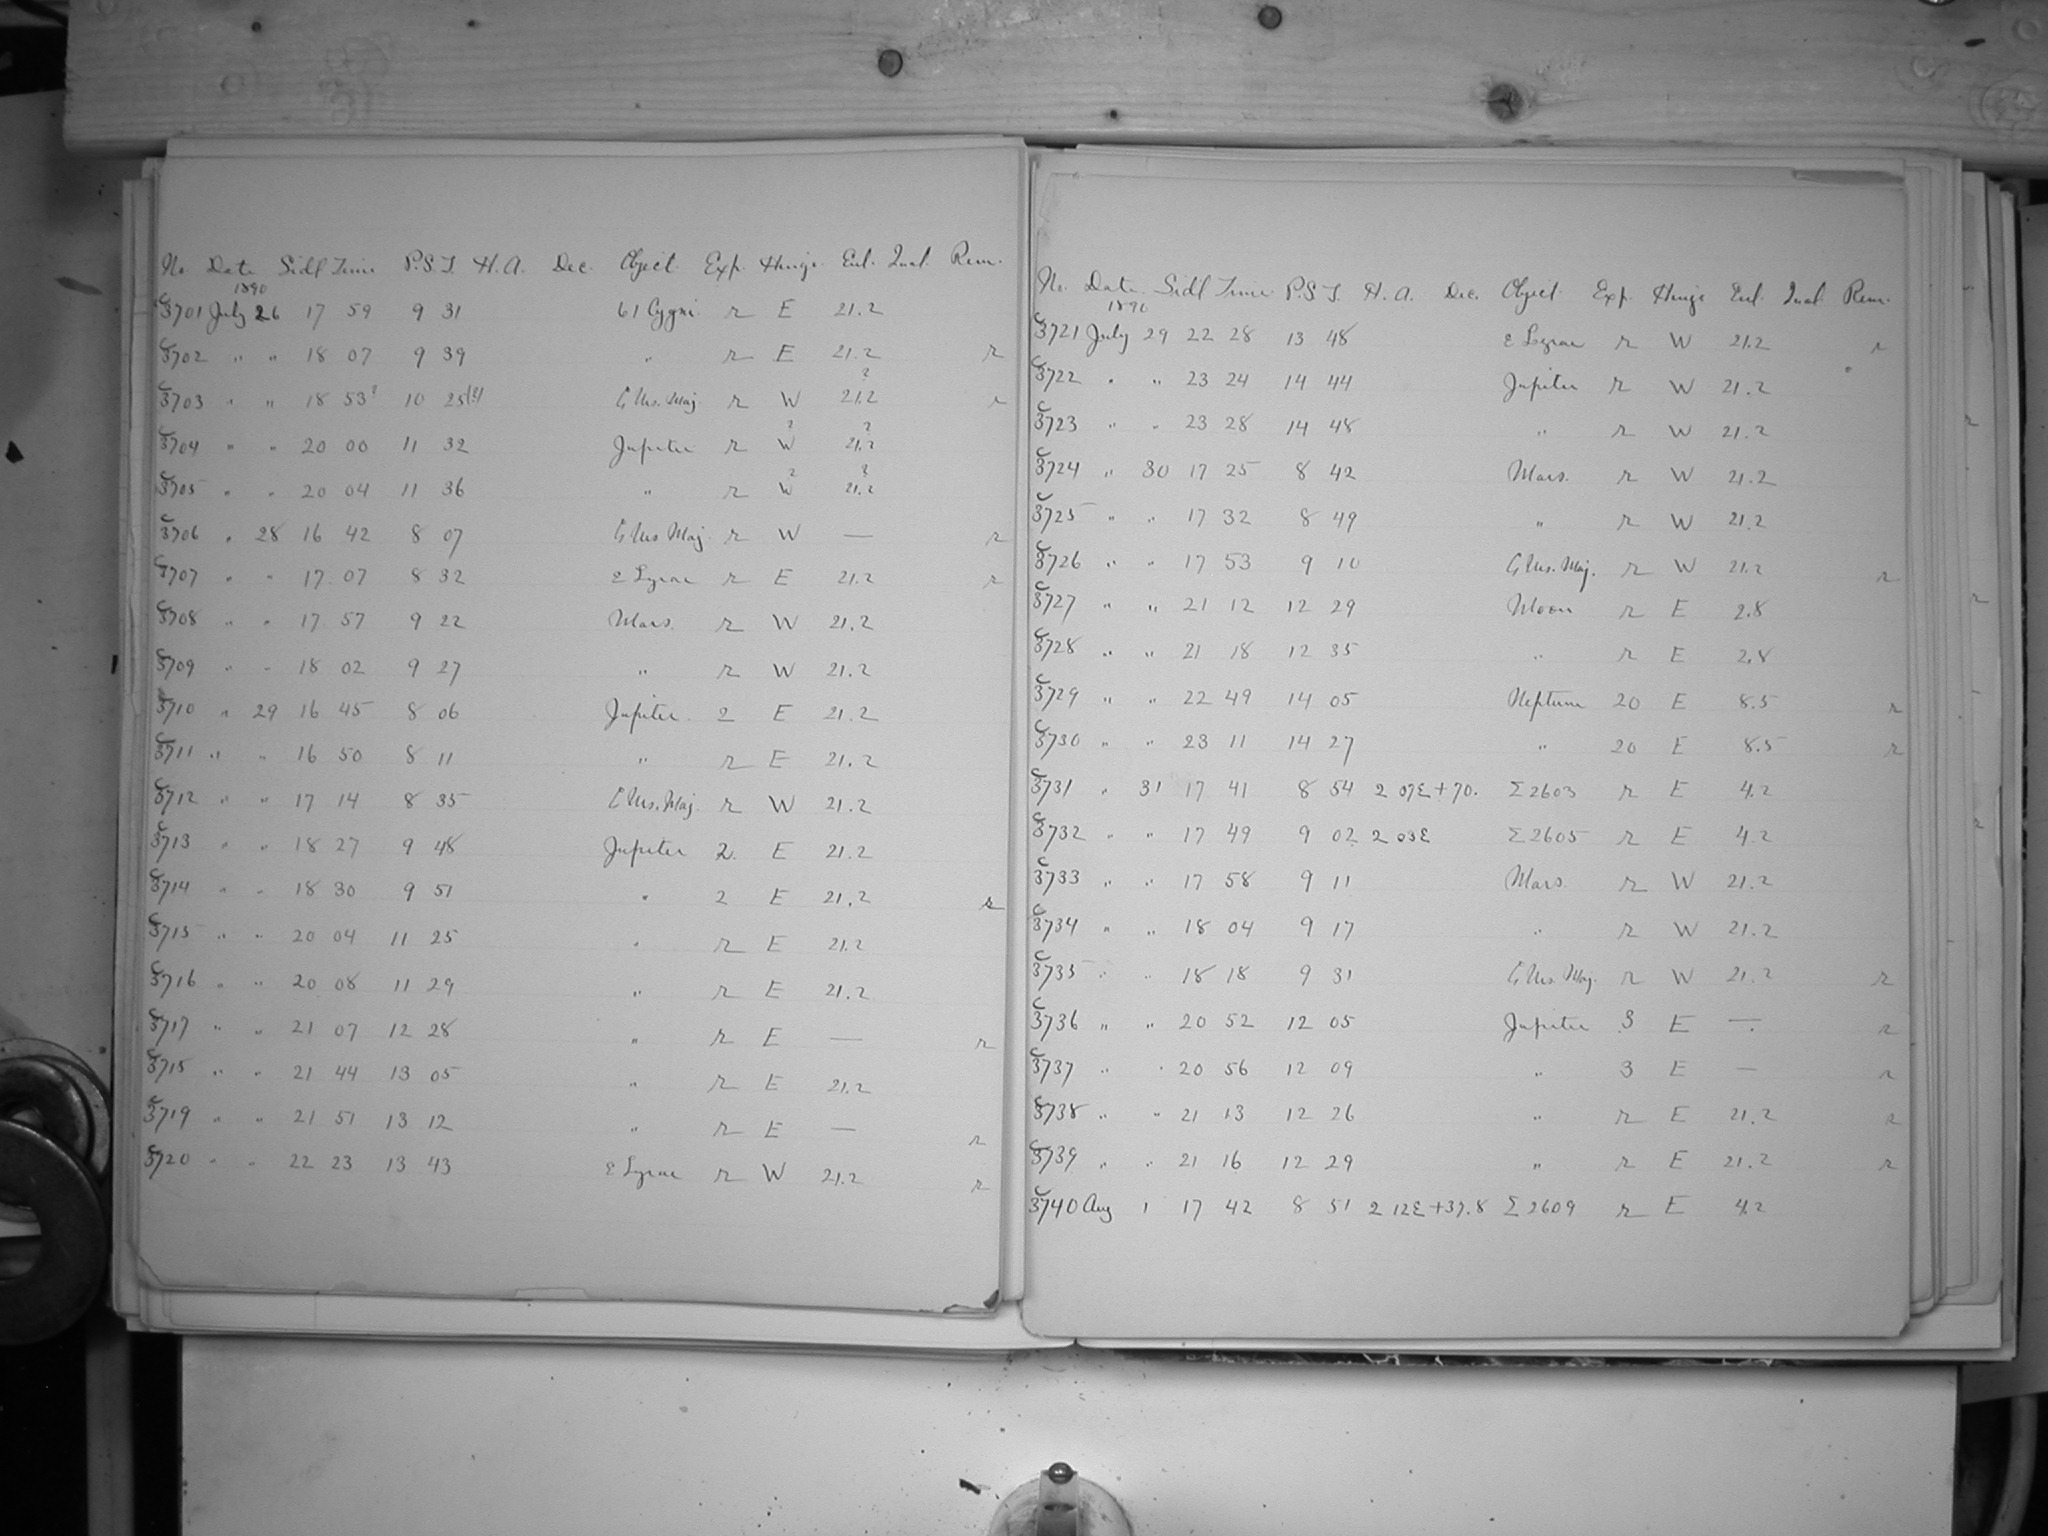 No. Date Sidl Time P.S.T. H.A. Dec. Object. Exp. Hinge. Enl. Qual. Rem.
1890
C3701 July 26 17 59 9 31 61 Cygni. r E 21.2
C3702 " " 18 07 9 39 " r E 21.2 r
C3703 " " 18 53? 10 25(?) ζ Urs. Maj. r W 21.2? r
C3704 " " 20 00 11 32 Jupiter r W? 21.2?
C3705 " " 20 04 11 36 " r W? 21.2?
C3706 " 28 16 42 8 07 ζ Urs Maj. r W — r
C3707 " " 17 07 8 32 ε Lyrae r E 21.2 r
C3708 " " 17 57 9 22 Mars. r W 21.2
C3709 " " 18 02 9 27 " r W 21.2
C3710 " 29 16 45 8 06 Jupiter. 2 E 21.2
C3711 " " 16 50 8 11 " r E 21.2
C3712 " " 17 14 8 35 ζ Urs. Maj. r W 21.2
C3713 " " 18 27 9 48 Jupiter 2. E 21.2
C3714 " " 18 30 9 51 " 2 E 21.2 r
C3715 " " 20 04 11 25 " r E 21.2
C3716 " " 20 08 11 29 " r E 21.2
C3717 " " 21 07 12 28 " r E — r
C3718 " " 21 44 13 05 " r E 21.2
C3719 " " 21 51 13 12 " r E — r
C3720 " " 22 23 13 43 ε Lyrae r W 21.2 r
No. Date. Sidl Time P.S.T. H.A. Dec. Object. Exp. Hinge Enl. Qual. Rem.
1890
C3721 July 29 22 28 13 48 ε Lyrae r W 21.2 r
C3722 " " 23 24 14 44 Jupiter r W 21.2
C3723 " " 23 28 14 48 " r W 21.2
C3724 " 30 17 25 8 42 Mars. r W 21.2
C3725 " " 17 32 8 49 " r W 21.2
C3726 " " 17 53 9 10 ζ Urs. Maj. r W 21.2 r
C3727 " " 21 12 12 29 Moon r E 2.8
C3728 " " 21 18 12 35 " r E 2.8
C3729 " " 22 49 14 05 Neptune 20 E 8.5 r
C3730 " " 23 11 14 27 " 20 E 8.5 r
C3731 " 31 17 41 8 54 2 07E +70. Σ 2603 r E 4.2
C3732 " " 17 49 9 02 2 03E Σ 2605 r E 4.2
C3733 " " 17 58 9 11 Mars. r W 21.2
C3734 " " 18 04 9 17 " r W 21.2
C3735 " " 18 18 9 31 ζ Urs. Maj. r W 21.2 r
C3736 " " 20 52 12 05 Jupiter 3 E — r
C3737 " " 20 56 12 09 " 3 E — r
C3738 " " 21 13 12 26 " r E 21.2 r
C3739 " " 21 16 12 29 " r E 21.2 r
C3740 Aug 1 17 42 8 51 2 12E +37.8 Σ 2609 r E 4.2